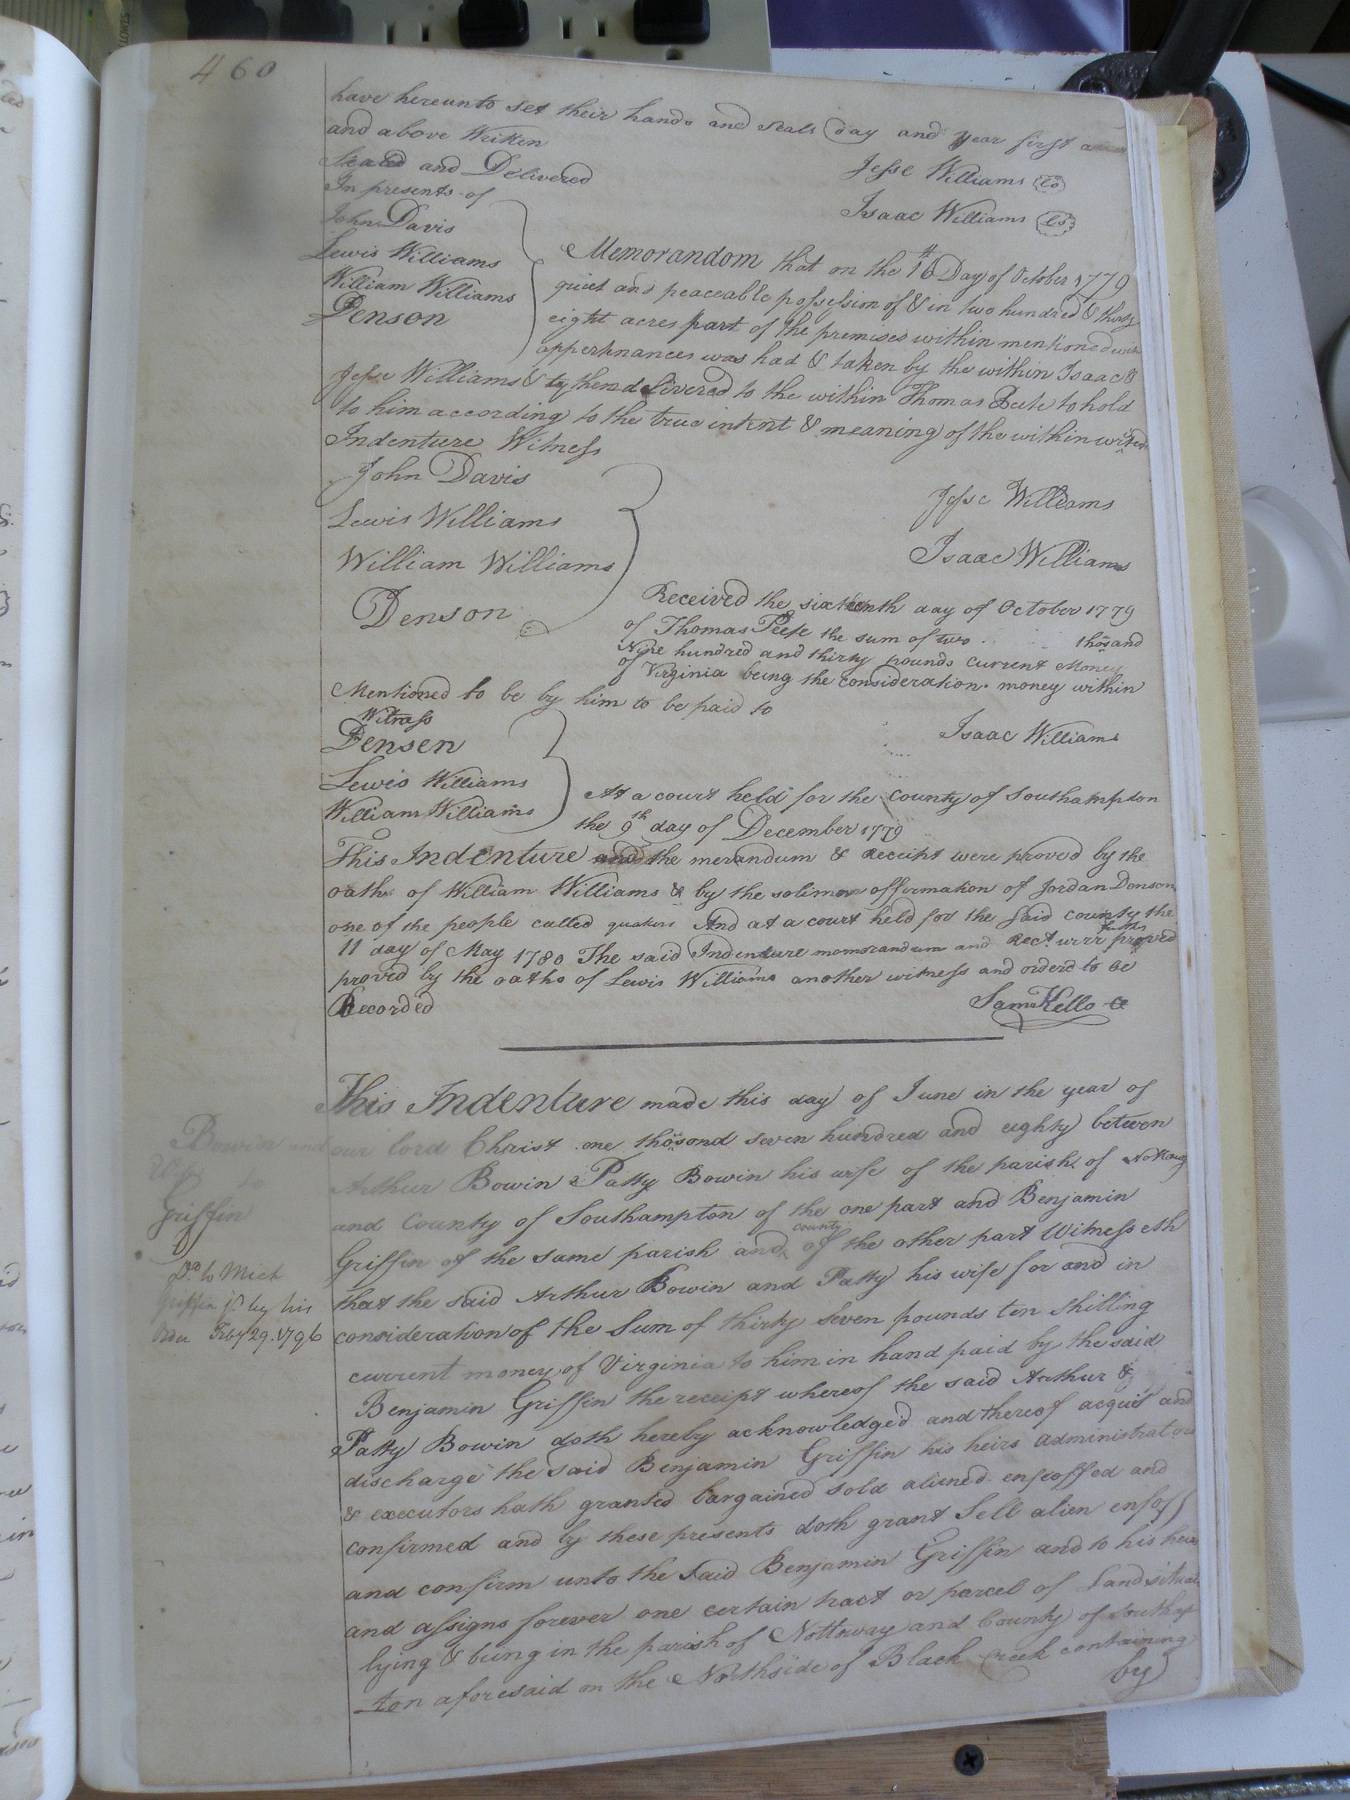 460
have hereunto set their hands and seals day and year first
and above Written
Sealed and Delivered
In presents of
John Davis
Lewis Williams
William Williams
Denson
Jesse Williams LS
Isaac Williams LS
Memorandom that on the 16th Day of October 1779
quiet and peaceable possession of & in two hundred & thirty
eight acres part of the premises within mentioned with
appertinances was had & taken by the within Isaac &
Jesse Williams & by them delivered to the within Thomas Peete to hold
to him according to the true intent & meaning of the within
Indenture Witness
John Davis
Lewis Williams
William Williams
Denson
Jesse Williams
Isaac Williams
Received the sixteenth day of October 1779
of Thomas Peete the sum of two thosand
Nine hundred and thirty pounds current Money
of Virginia being the consideration money within
Mentioned to be by him to be paid to
Witness
Densen
Lewis Williams
William Williams
Isaac Williams
At a court held for the County of Southampton
the 9th day of December 1779
This Indenture and the merandum & Receipt were proved by the
oath of William Williams & by the solimn affirmation of Jordan Denson
one of the people called quakers And at a court held for the said county the
11 day of May 1780 The said Indenture momorandum and Rect. were further proved
proved by the oaths of Lewis Williams another witness and orderd to be
Recorded
Saml Kello Cl
This Indenture made this day of June in the year of
our lord Christ one thosond seven hundred and eighty between
Arthur Bowin & Patty Bowin his wife of the parish of Nottoway
and County of Southampton of the one part and Benjamin
Griffin of the same parish and county of the other part Witnesseth
that the said Arthur Bowin and Patty his wife for and in
consideration of the Sum of thirty seven pounds ten shilling
current money of Virginia to him in hand paid by the said
Benjamin Griffin the receipt whereof the said Arthur &
Patty Bowin doth hereby acknowledged and thereof acquit and
discharge the said Benjamin Griffin his heirs administrators
& executors hath granted bargained sold aliened enfeoffed and
confirmed and by these presents doth grant Sell alien enfoff
and confirm unto the said Benjamin Griffin and to his heirs
and assigns forever one certain tract or parcel of Land situate
lying & being in the parish of Nottoway and County of Southap
ton aforesaid on the Northside of Black Creek containing
by
Bowin and
Wife to
Griffin
Dd to Mich
Griffin by his
Order Feby 29. 1796